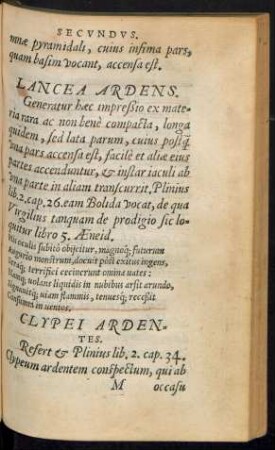 SECVNDVS.
mnæ pyramidali, cuius infima pars,
quam basim vocant, accensa est.
LANCEA ARDENS.
Generatur hæc impressio ex mate-
ria rara ac non benè compacta, longa
quidem, sed lata parum, cuius postq̃
vna pars accensa est, facilè et aliæ eius
partes accenduntur, & instar iaculi ab
vna parte in aliam transcurrit. Plinius
lib.2.cap.26.eam Bolida vocat, de qua
Virgilius tanquam de prodigio sic lo-
quitur libro 5. Æneid.
Hic oculis subitò obijcitur, magnoq́; futurum
Augurio monstrum, docuit pòst exitus ingens,
Seraq́; terrifici cecinerunt omina vates:
Nanq; volans liquidis in nubibus arsit arundo,
Signauitq́; viam flammis, tenuesq́; recessit
Consumta in ventos.
CLYPEI ARDEN-
TES.
Refert & Plinius lib. 2. cap. 34.
Clypeum ardentem conspectum, qui ab
M occasu